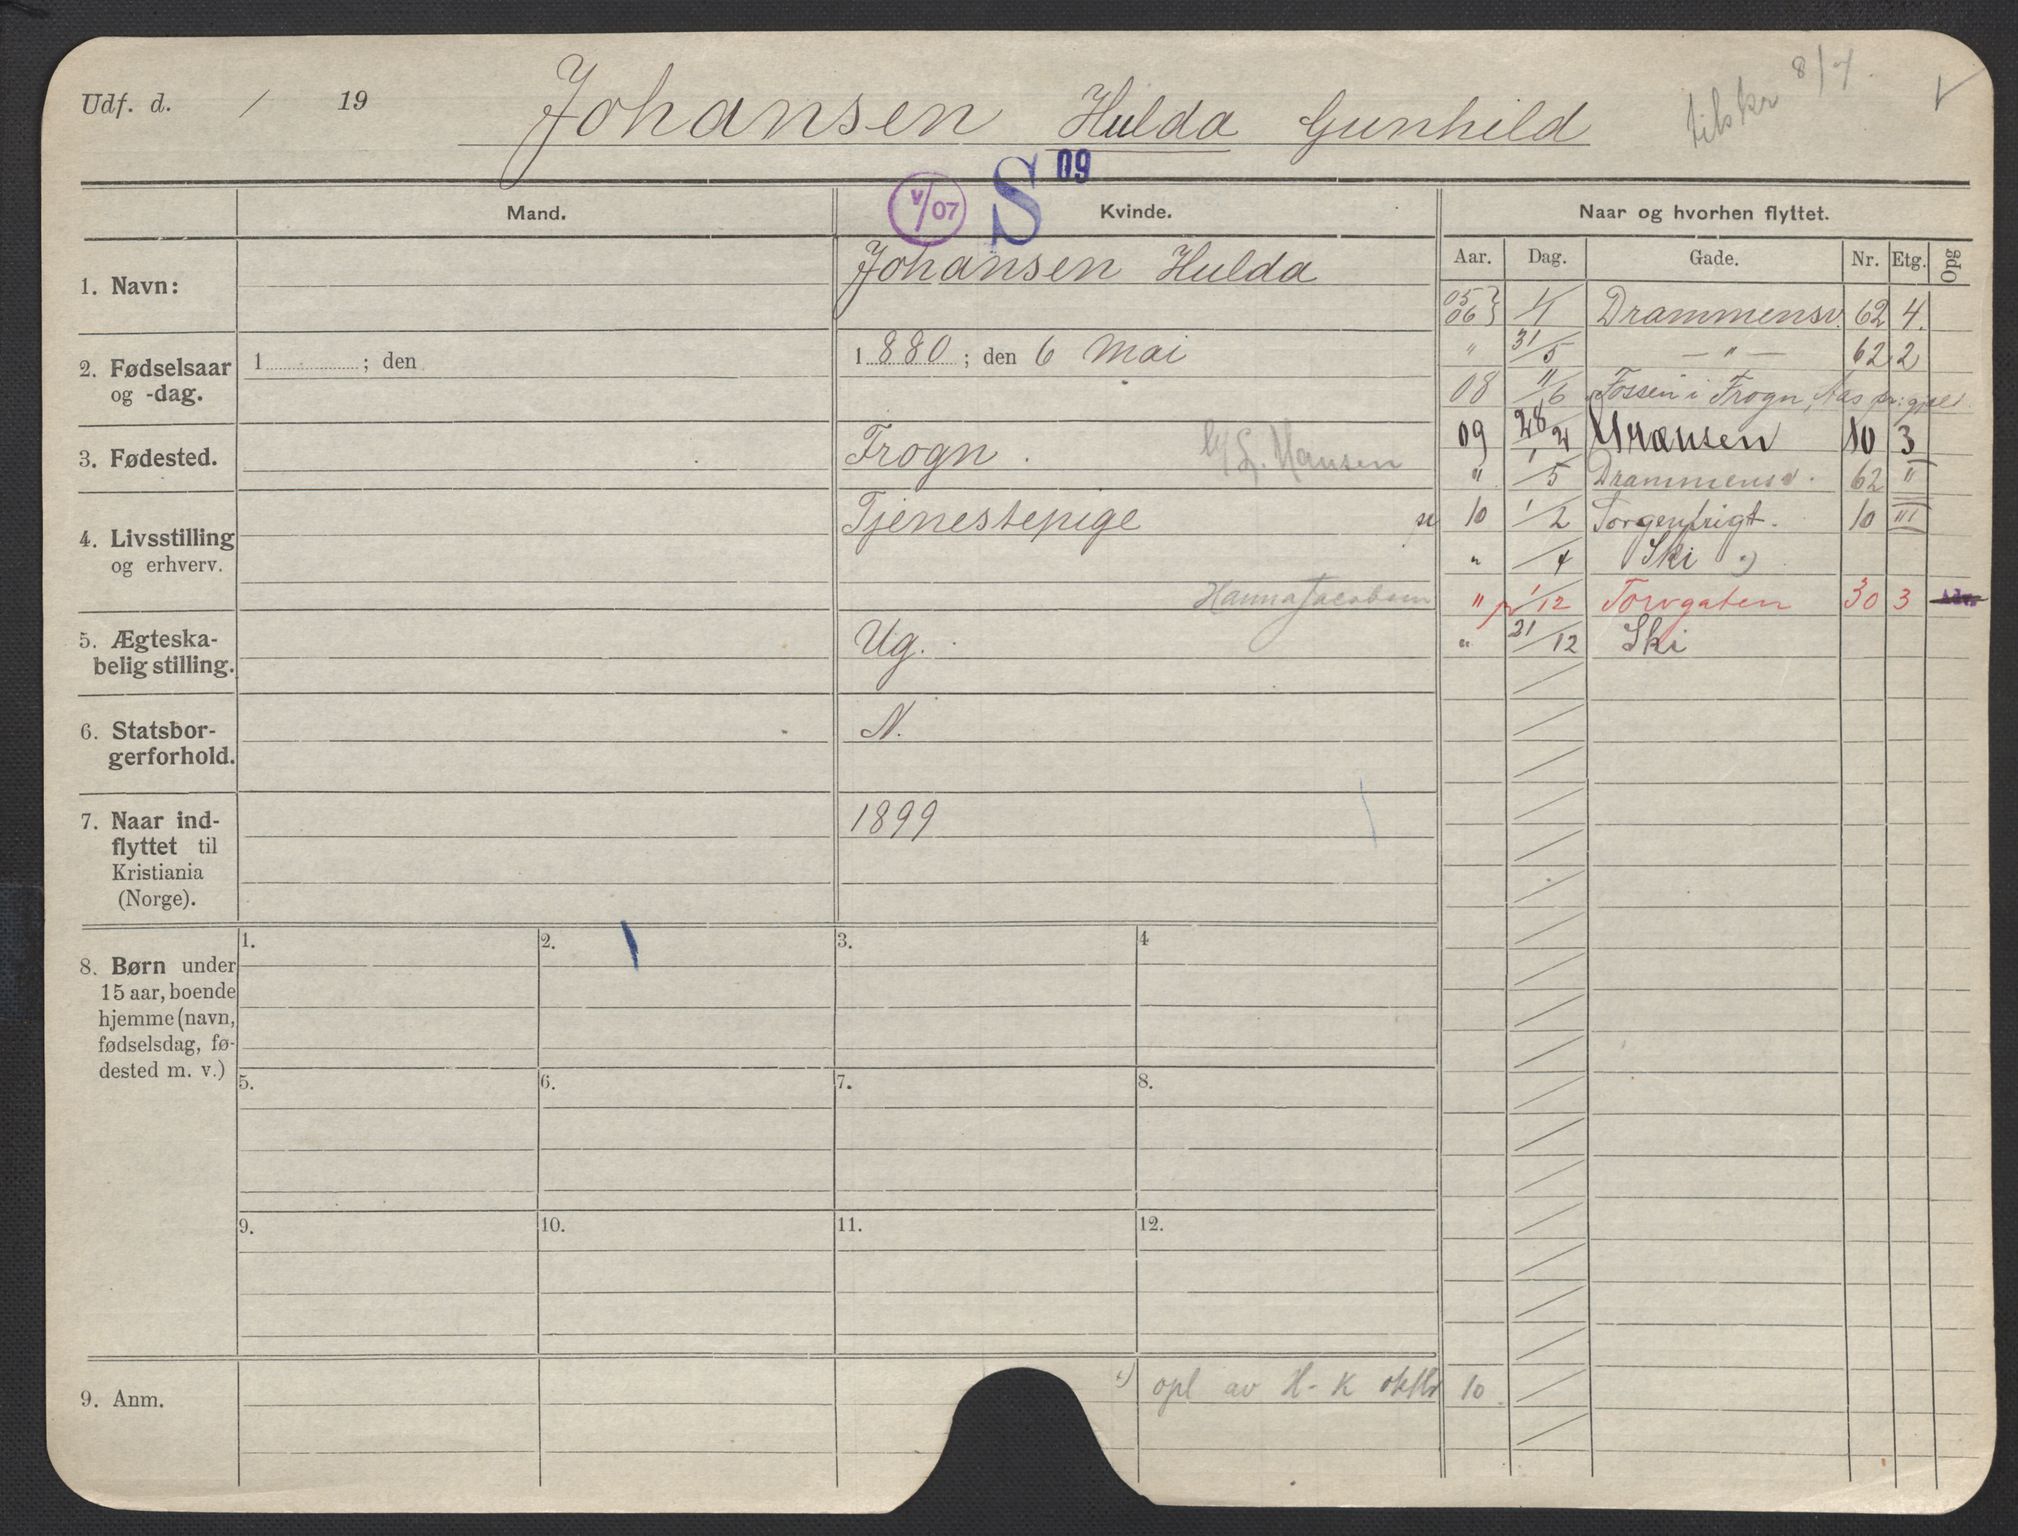 Udf. d. / 19 Johansen Hulda Gunhild tilskr 8/4.
v/07 S 09
Mand. Kvinde. Naar og hvorhen flyttet.
Aar. Dag. Gade. Nr. Etg. Opg
1. Navn: Johansen Hulda
2. Fødselsaar og -dag. 1 ; den
1880; den 6 Mai
3. Fødested. Frogn. L. Hansen
4. Livsstilling og erhverv. Tjenestepige
Hanna Jacobsen
5. Ægteska-
belig stilling. Ug.
6. Statsbor-
gerforhold. N.
7. Naar ind-
flyttet til
Kristiania
(Norge). 1899
05 06 } 1/ Drammensv. 62 4.
" 31/5 — " — 62 2
08 11/6 Fossen i Frogn, Aas
09 28/2 Grænsen 10 3
" 1/5 Drammensv. 62 "
10 1/2 Sorgenfrigt. 10 III
" /4 Ski
" 1/12 Torvgaten 30 3
" 21/12 Ski
8. Børn under
15 aar, boende
hjemme (navn,
fødselsdag, fø-
dested m. v.)
1. 2. 3. 4
5. 6. 7. 8.
9. 10. 11. 12.
9. Anm. opl av H-K oktbr 10